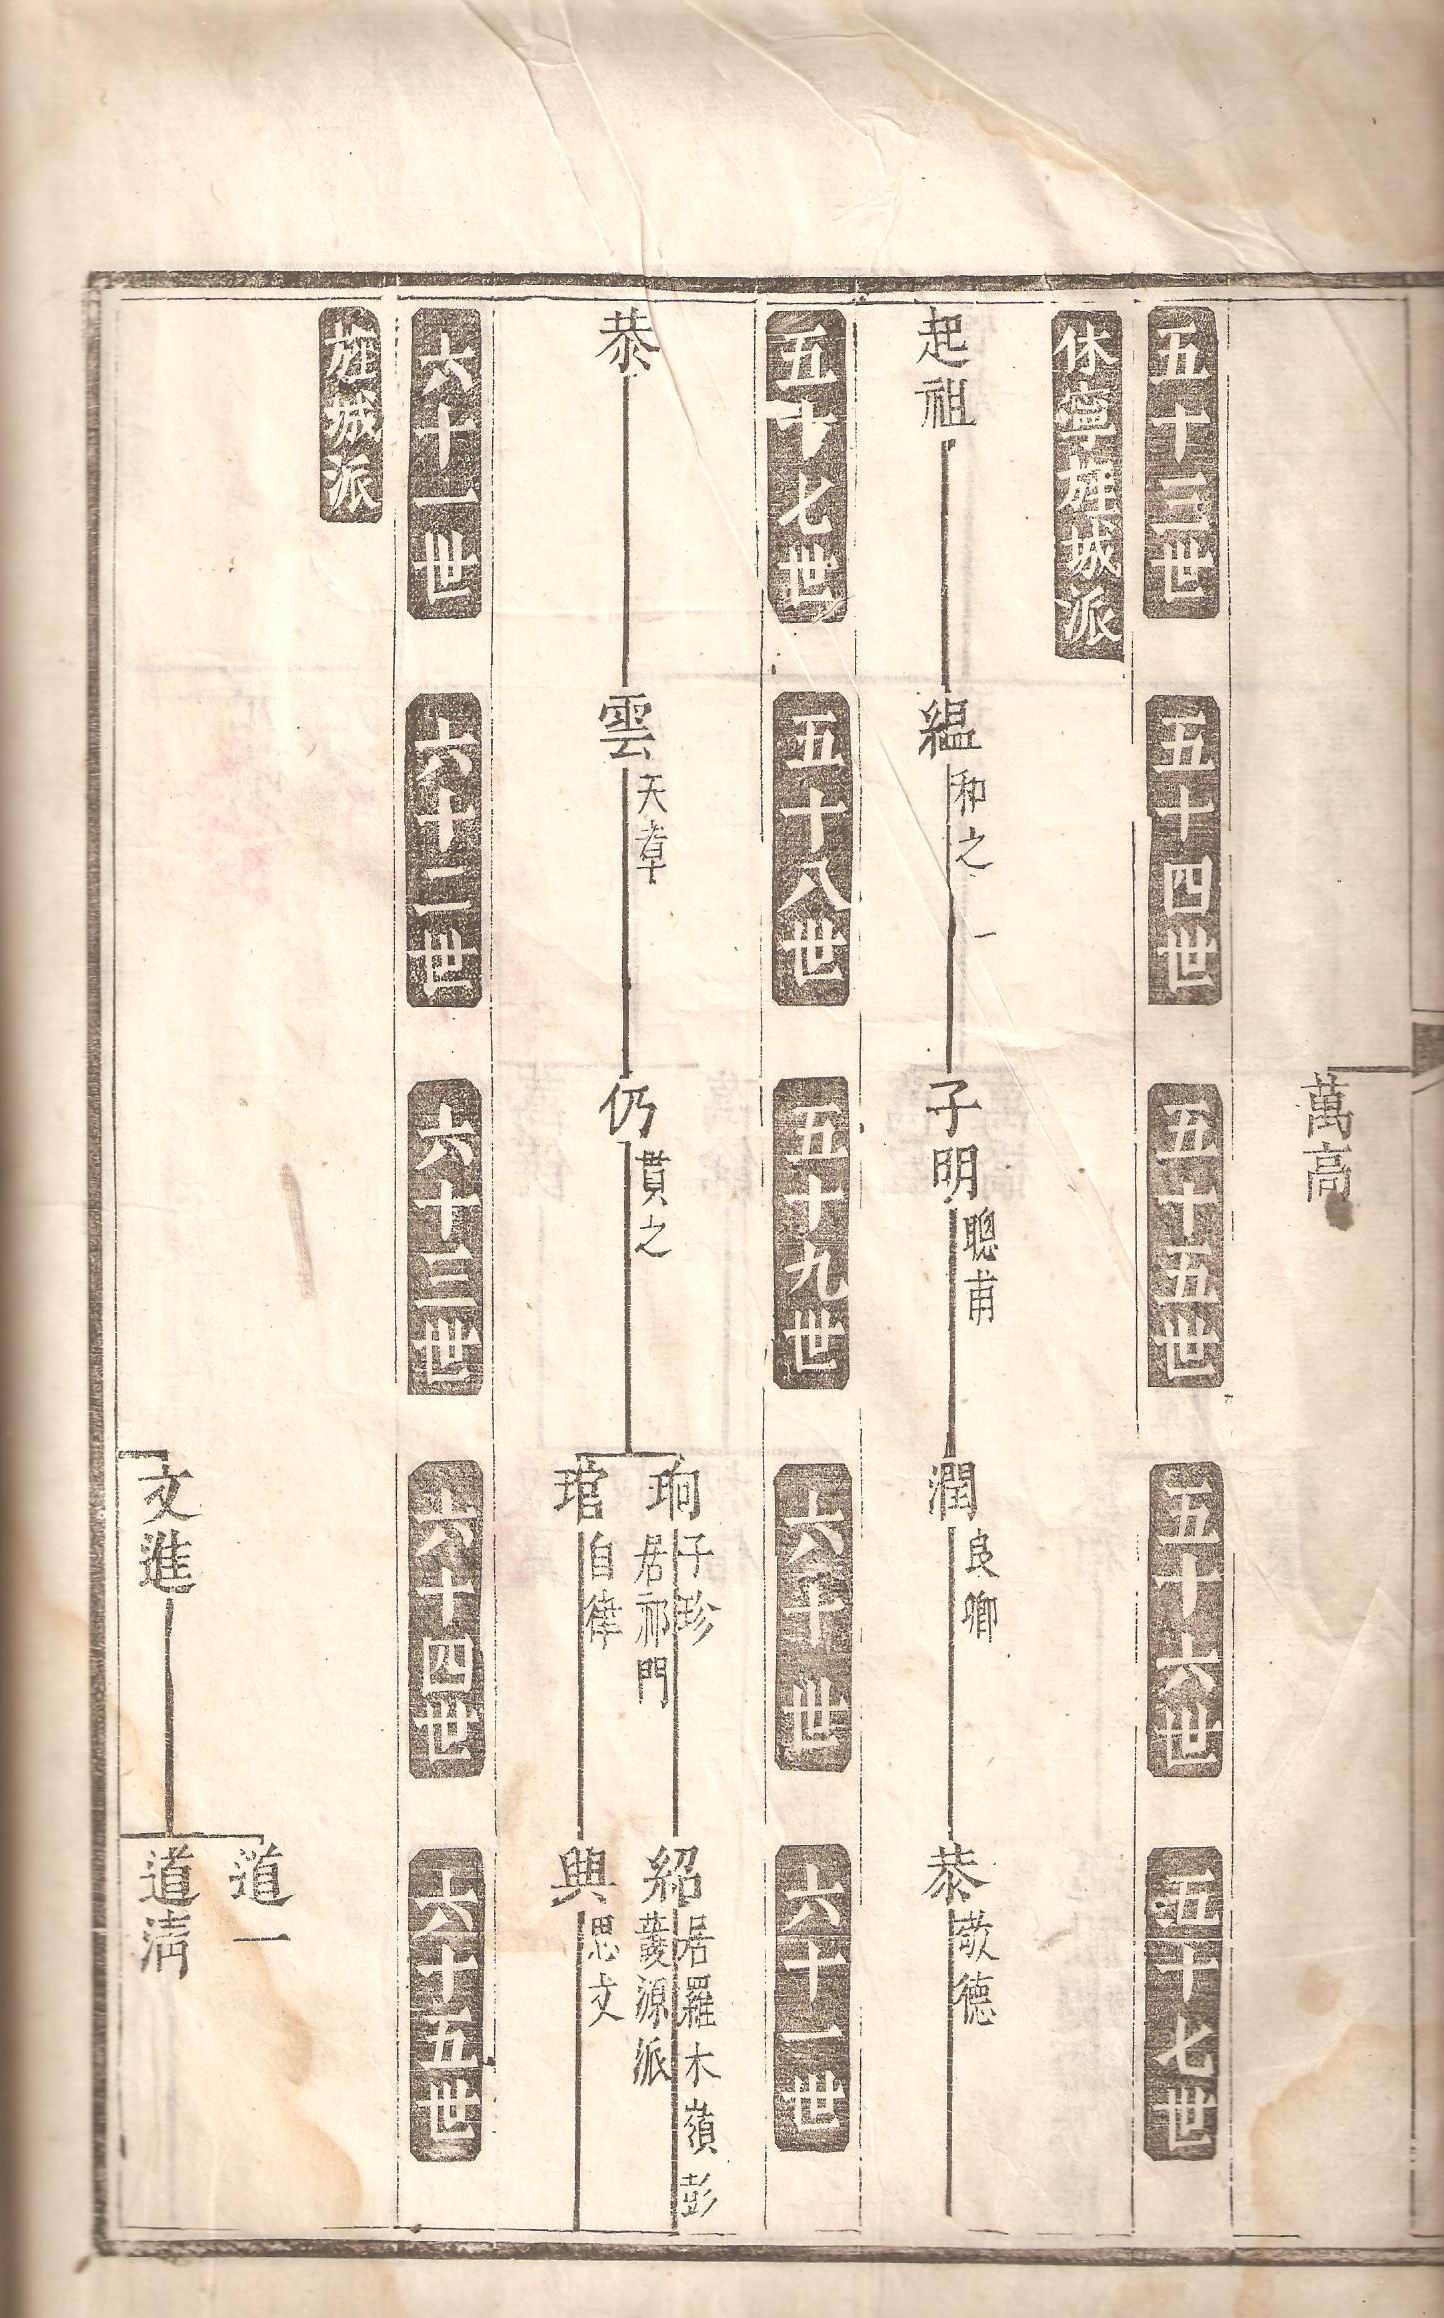 萬高
五十三世
五十四世
五十五世
五十六世
五十七世
休寧旌城派
起祖
緼 和之
子明 聰甫
潤 良卿
恭 敬德
五十七世
五十八世
五十九世
六十世
六十一世
恭
雲 天章
仍 貫之
珦 子珍 居祁門
琯 自律
紹 居羅木嶺彭
源派
興 思文
六十一世
六十二世
六十三世
六十四世
六十五世
旌城派
文進
道一
道淸